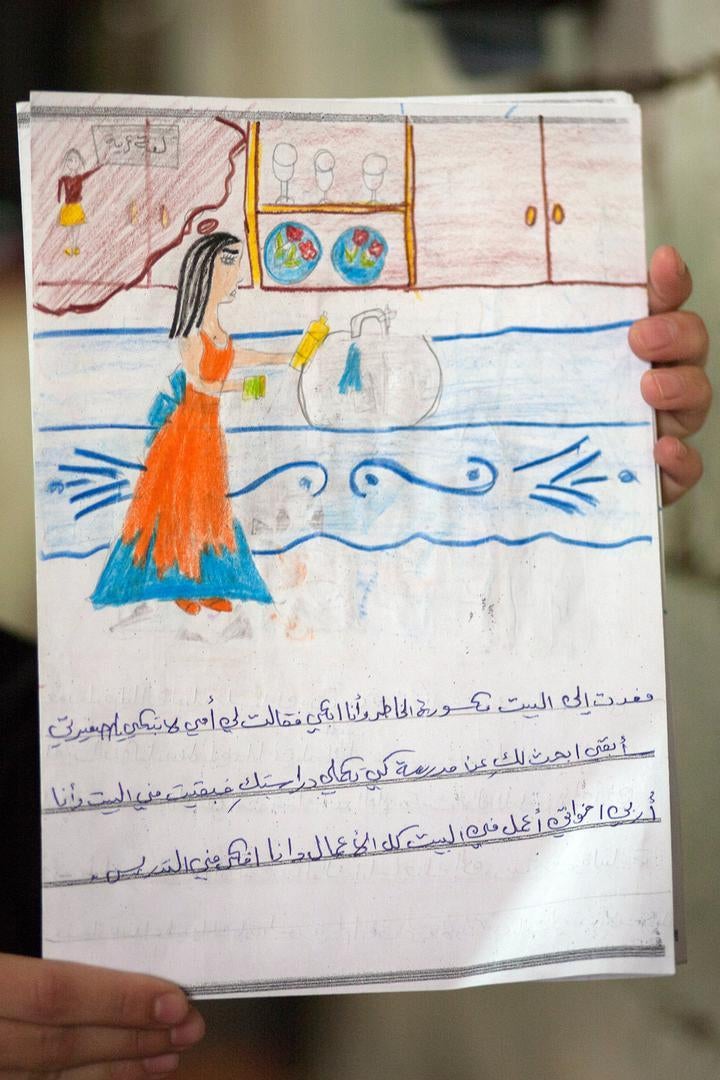 لغة عربية
فعدت إلى البيت مكسورة الخاطر وأنا ابكي فقالت لي أمي لا تبكي يا صغيرتي
أبقى ابحث لكِ عن مدرسة كي تكملي دراستكِ فبقيت في البيت وأنا
أربي اخواتي أعمل في البيت كل الأعمال وانا افكر في التدريس.